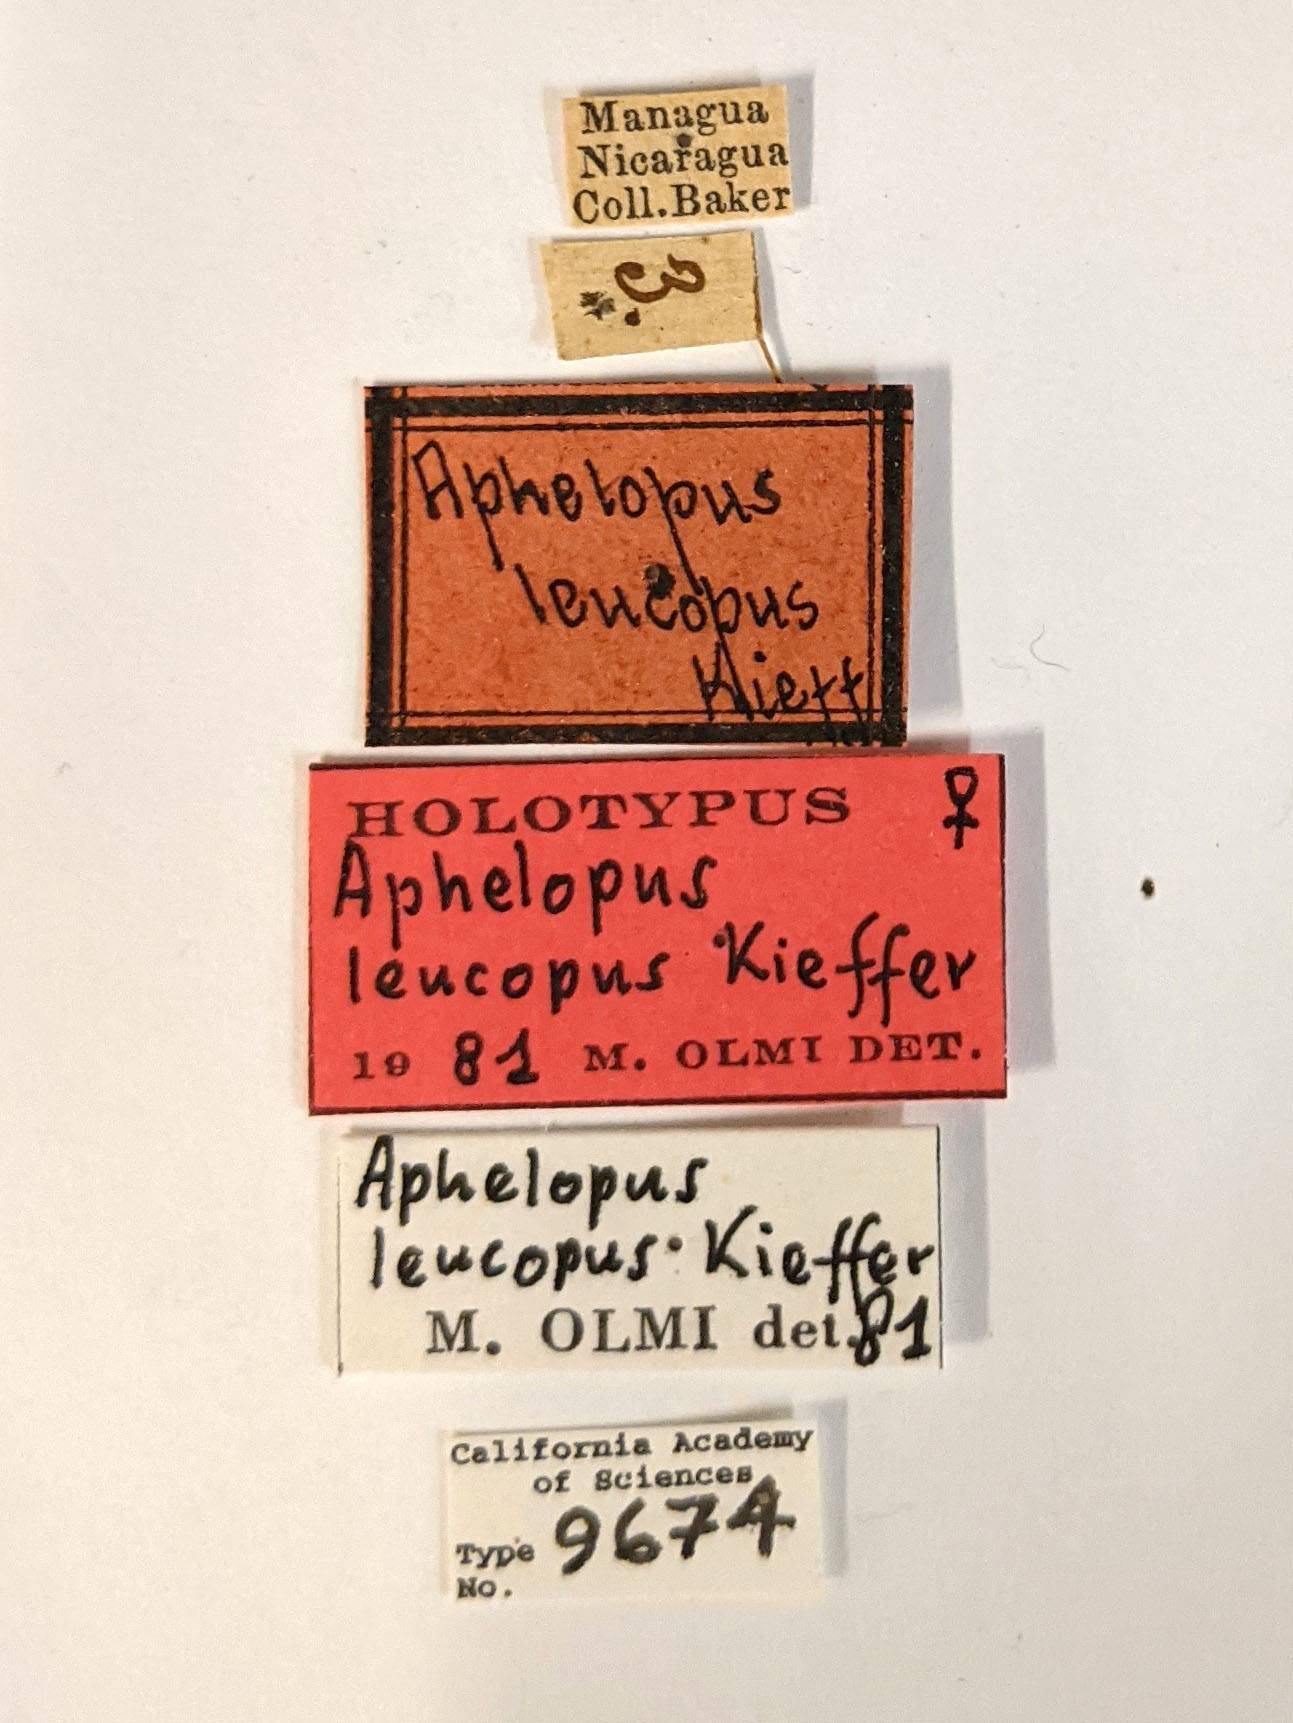 Managua
Nicaragua
Coll. Baker
3.
Aphelopus
leucopus
Kieff
HOLOTYPUS ♀
Aphelopus
leucopus Kieffer
19 81 M. OLMI DET.
Aphelopus
leucopus Kieffer
M. OLMI det. 81
California Academy
of Sciences
Type 9674
No.